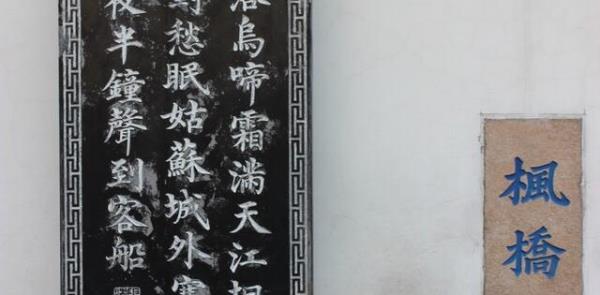 楓橋
落烏啼霜滿天江楓
對愁眠姑蘇城外寒
夜半鐘聲到客船